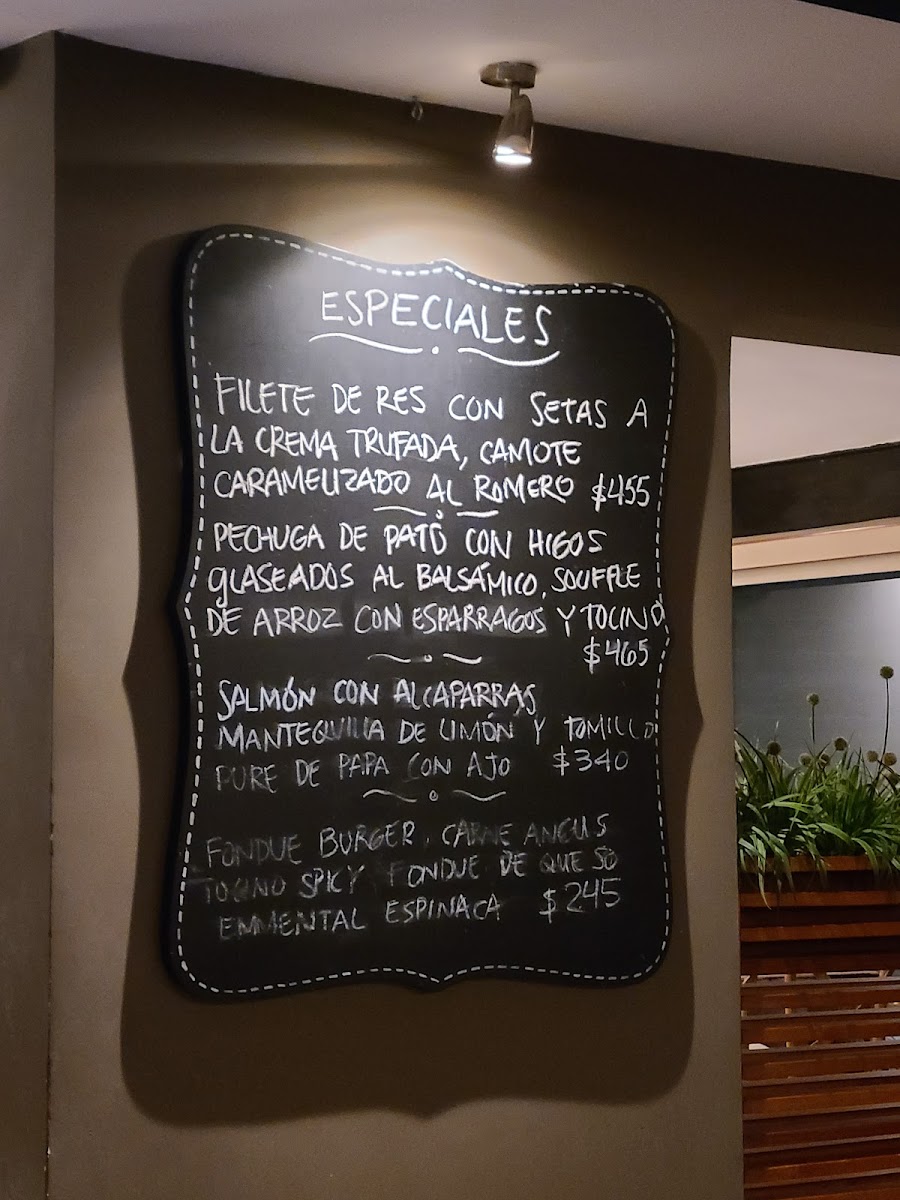 ESPECIALES
FILETE DE RES CON SETAS A
LA CREMA TRUFADA, CAMOTE
CARAMELIZADO AL ROMERO $455
PECHUGA DE PATO CON HIGOS
GLASEADOS AL BALSÁMICO, SOUFFLE
DE ARROZ CON ESPARRAGOS Y TOCINO
$465
SALMÓN CON ALCAPARRAS
MANTEQUILLA DE LIMÓN Y TOMILLO
PURE DE PAPA CON AJO $340
FONDUE BURGER, CARNE ANGUS
TOCINO SPICY FONDUE DE QUESO
EMMENTAL ESPINACA $245